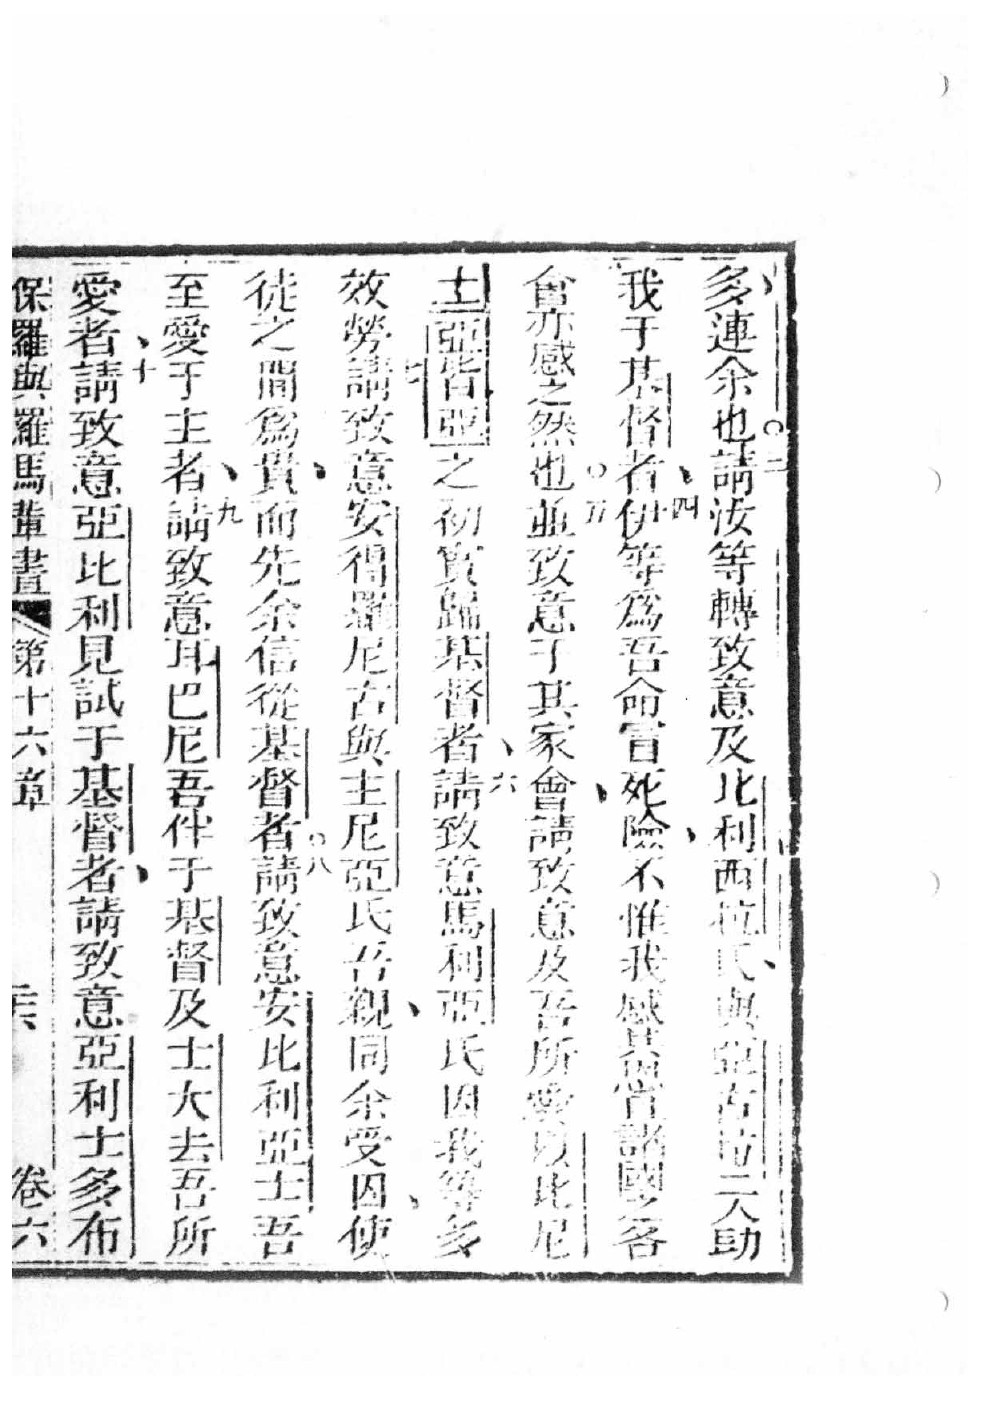 多連余也三請汝等轉致意及比利西拉氏與亞古拉二人助
我于基督者四伊等爲吾命冒死險不惟我感其恩諸國之客
會亦感之然也五並致意于其家會請致意及吾所愛以比尼
士亞皆亞之初實歸基督者六請致意馬利亞氏因我等多
效勞七請致意安得羅尼古與主尼亞氏吾親同余受囚使
徒之間爲貴而先余信從基督者八請致意安比利亞士吾
至愛于主者九請致意耳巴尼吾伴于基督及士大去吾所
愛者十請致意亞比利見試于基督者請致意亞利士多布
保羅與羅馬輩書 第十六章 二六 卷六